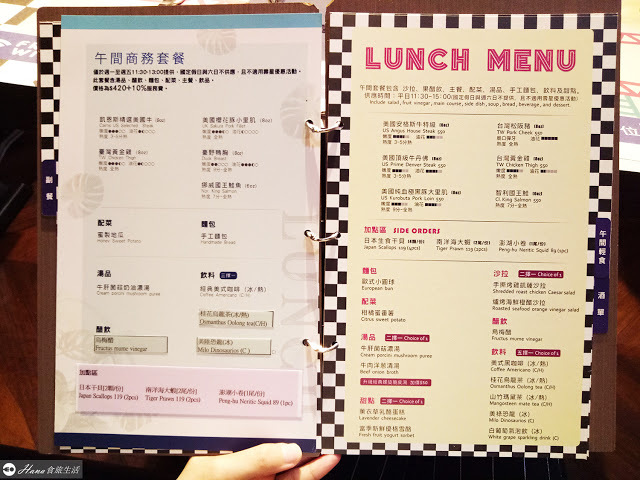 午間商務套餐
僅於週一至週五11:30-13:00提供，國定假日與六日不供應，且不適用壽星優惠活動。
此套餐含湯品、醋飲、麵包、配菜、主餐、飲品。
價格為$420+10%服務費。
凱恩斯精選美國牛 (6oz)
熟度 3-5分熟
美國櫻花豚小里肌 (6oz)
US Sakura Pork Fillet
熟度 全熟
臺灣黃金雞 (6oz)
TW Chicken Thigh
熟度 全熟
臺野鴨胸 (6oz)
Duck Breast
挪威國王鮭魚 (6oz)
Nor. King Salmon
熟度 7分-全熟
配菜
蜜製地瓜
Honey Sweet Potato
麵包
手工麵包
Handmade Bread
湯品
牛肝菌菇奶油濃湯
Cream porcini mushroom puree
飲料 三擇一
經典美式咖啡 (冰/熱)
Coffee Americano (C/H)
桂花烏龍茶(冰/熱)
Osmanthus Oolong tea(C/H)
醋飲
烏梅醋
Fructus mume vinegar
美綠恐龍(冰)
Milo Dinosaurios ( C )
加點區
日本干貝(2顆/份)
Japan Scallops 119 (2pcs)
南洋大蝦(2尾/份)
Tiger Prawn 119 (2pcs)
澎湖小卷(1尾/份)
Peng-hu Neritic Squid 89 (1pc)
副餐
LUNCH MENU
午間套餐包含 沙拉、果醋飲、主餐、配菜、湯品、手工麵包、飲料及甜點。
供應時間：平日11:30-15:00(國定假日與六日不提供，且不適用壽星優惠活動)
Include salad, fruit vinegar, main course, side dish, soup, bread, beverage, and dessert.
美國安格斯牛特緹 (6oz)
US Angus House Steak 550
熟度 3-5分熟
台灣松阪豬 (6oz)
TW Pork Cheek 550
熟度 全熟
美國頂級牛丹佛 (6oz)
US Prime Denver Steak 550
台灣黃金雞 (6oz)
TW Chicken Thigh 550
熟度 全熟
美國純血極黑豚大里肌 (6oz)
US Kurobuta Pork Loin 550
智利國王鮭 (6oz)
CL King Salmon 550
熟度 7分-全熟
加點區 SIDE ORDERS
日本生食干貝 (2顆/份)
Japan Scallops 119 (2pcs)
南洋海大蝦 (2尾/份)
Tiger Prawn 119 (2pcs)
澎湖小卷 (1尾/份)
Peng-hu Neritic Squid 89 (1pc)
麵包
歐式小圓球
European bun
配菜
柑橘蜜番薯
Citrus sweet potato
湯品 二擇一 Choice of 1
牛肝菌菇濃湯
Cream porcini mushroom puree
牛肉洋蔥清湯
Beef onion broth
甜點 二擇一 Choice of 1
薰衣草乳酪蛋糕
Lavender cheesecake
當季新鮮優格雪酪
Fresh fruit yogurt sorbet
沙拉 二擇一 Choice of 1
手撕烤雞凱薩沙拉
Shredded roast chicken Caesar salad
爐烤海鮮橙醋沙拉
Roasted seafood orange vinegar salad
醋飲
烏梅醋
Fructus mume vinegar
飲料 五擇一 Choice of 1
美式黑咖啡 (冰/熱)
Coffee Americano (C/H)
桂花烏龍茶 (冰/熱)
Osmanthus Oolong tea (C/H)
山竹瑪黛茶 (冰/熱)
Mangosteen mate tea (C/H)
美綠恐龍 (冰)
Milo Dinosaurios (C)
白葡萄氣泡飲 (冰)
White grape sparkling drink (C)
午間輕食
酒單
Hana食旅生活